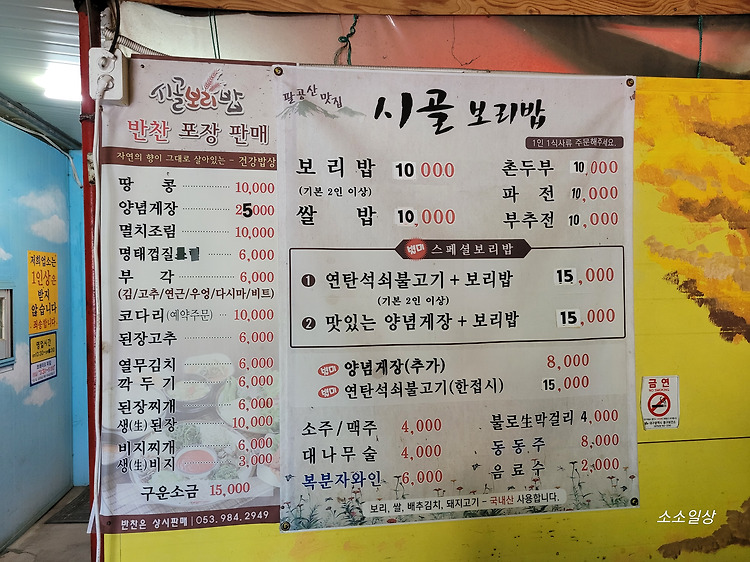 시골보리밥
반찬 포장 판매
자연의 향이 그대로 살아있는 - 건강밥상
땅 콩 10,000
양념게장 25000
멸치조림 10,000
명태껍질 6,000
부 각 6,000
(김/고추/연근/우엉/다시마/비트)
코다리(예약주문) 10,000
된장고추 6,000
열무김치 6,000
깍 두 기 6,000
된장찌개 6,000
생(生)된장 10,000
비지찌개 6,000
생(生)비지 3,000
구운소금 15,000
반찬은 상시판매 053.984.2949
팔공산 맛집
시골 보리밥
1인 1식사류 주문해주세요.
보 리 밥 10 000
(기본 2인 이상)
쌀 밥 10,000
촌두부 10,000
파 전 10,000
부추전 10,000
별미 스페셜보리밥
1 연탄석쇠불고기 + 보리밥 15,000
(기본 2인 이상)
2 맛있는 양념게장 + 보리밥 15,000
별미 양념게장(추가) 8,000
별미 연탄석쇠불고기(한접시) 15,000
소주 / 맥주 4,000
대나무술 4,000
복분자와인 6,000
불로生막걸리 4,000
동동주 8,000
음료수 2,000
보리, 쌀, 배추김치, 돼지고기 - 국내산 사용합니다.
저희업소는
1인상은
받지
않습니다
죄송합니다
영업시간
금 연
NO SMOKING
소소일상